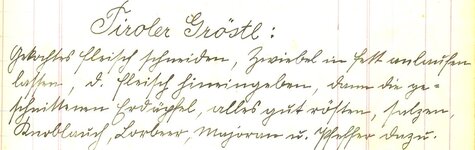 Tiroler Gröstl:
Gekochtes Fleisch schneiden, Zwiebel in Fett anlaufen
lassen, d. Fleisch hineingeben, dann die ge=
schnittenen Erdäpfel, alles gut rösten, salzen,
Knoblauch, Lorbeer, Majoran u. Pfeffer dazu.